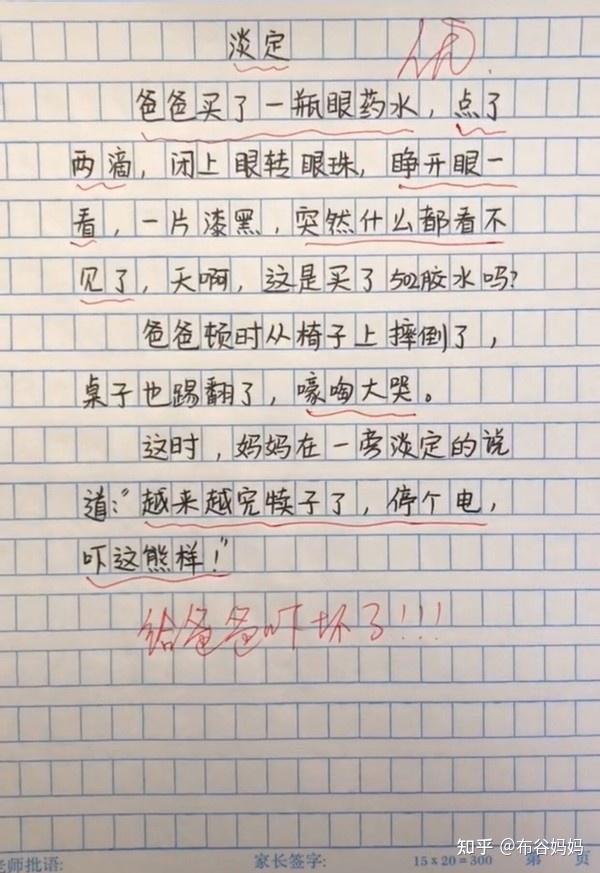 淡定
优
爸爸买了一瓶眼药水，点了
两滴，闭上眼转眼珠，睁开眼一
看，一片漆黑，突然什么都看不
见了，天啊，这是买了502胶水吗？
爸爸顿时从椅子上摔倒了，
桌子也踢翻了，嚎啕大哭。
这时，妈妈在一旁淡定的说
道：“越来越完犊子了，停个电，
吓这熊样！”
给爸爸吓坏了！！！
知乎 @布谷妈妈
老师批语: 家长签字: 15×20=300 第 页